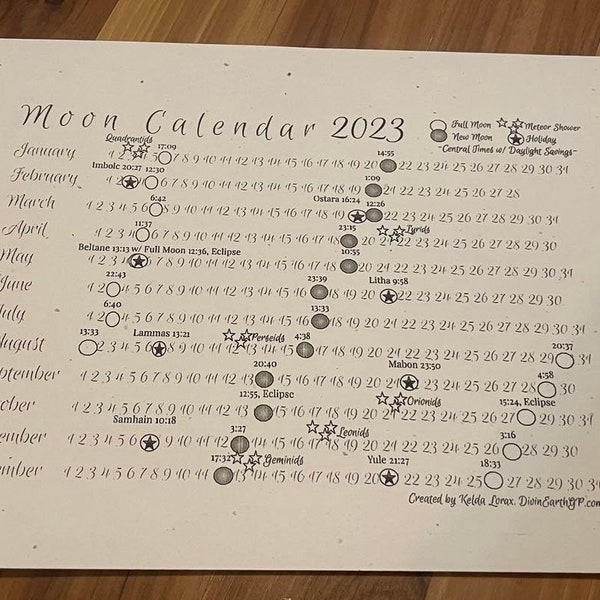 Moon Calendar 2023
Full Moon Meteor Shower
New Moon Holiday
~Central Times w/ Daylight Savings~
Quadrantids 17:09 14:55
January 1 2 5 7 8 9 10 11 12 13 14 15 16 17 18 19 20 22 23 24 25 26 27 28 29 30 31
Imbolc 20:27 12:30 1:09
February 1 2 4 6 7 8 9 10 11 12 13 14 15 16 17 18 19 21 22 23 24 25 26 27 28
6:42 Ostara 16:24 12:26
March 1 2 3 4 5 6 8 9 10 11 12 13 14 15 16 17 18 19 22 23 24 25 26 27 28 29 30 31
11:37 23:15 Lyrids
April 1 2 3 4 6 7 8 9 10 11 12 13 14 15 16 17 18 20 21 22 23 24 25 26 27 28 29 30
Beltane 13:13 w/ Full Moon 12:36, Eclipse 10:55
May 1 2 3 4 6 7 8 9 10 11 12 13 14 15 16 17 18 20 21 22 23 24 25 26 27 28 29 30 31
22:43 23:39 Litha 9:58
June 1 2 4 5 6 7 8 9 10 11 12 13 14 15 16 18 19 20 22 23 24 25 26 27 28 29 30
6:40 13:33
uly 1 2 4 5 6 7 8 9 10 11 12 13 14 15 16 18 19 20 21 22 23 24 25 26 27 28 29 30 31
13:33 Lammas 13:21 Perseids 4:38 20:37
ugust 2 3 4 5 6 8 9 10 11 12 13 14 15 17 18 19 20 21 22 23 24 25 26 27 28 29 31
20:40 Mabon 23:50 4:58
ptember 1 2 3 4 5 6 7 8 9 10 11 12 13 15 16 17 18 19 20 21 22 23 24 25 26 27 28 30
12:55, Eclipse Orionids 15:24, Eclipse
ober 1 2 3 4 5 6 7 8 9 10 11 12 13 15 16 17 18 19 20 21 22 23 24 25 26 27 29 30 31
Samhain 10:18 3:27 Leonids 3:16
ember 1 2 3 4 5 6 8 9 10 11 12 14 15 16 17 18 19 20 21 22 23 24 25 26 28 29 30
17:32 Geminids Yule 21:27 18:33
ember 1 2 3 4 5 6 7 8 9 10 11 13 14 15 16 17 18 19 20 22 23 24 25 27 28 29 30 31
Created by Kelda Lorax, DivinEarthGP.com